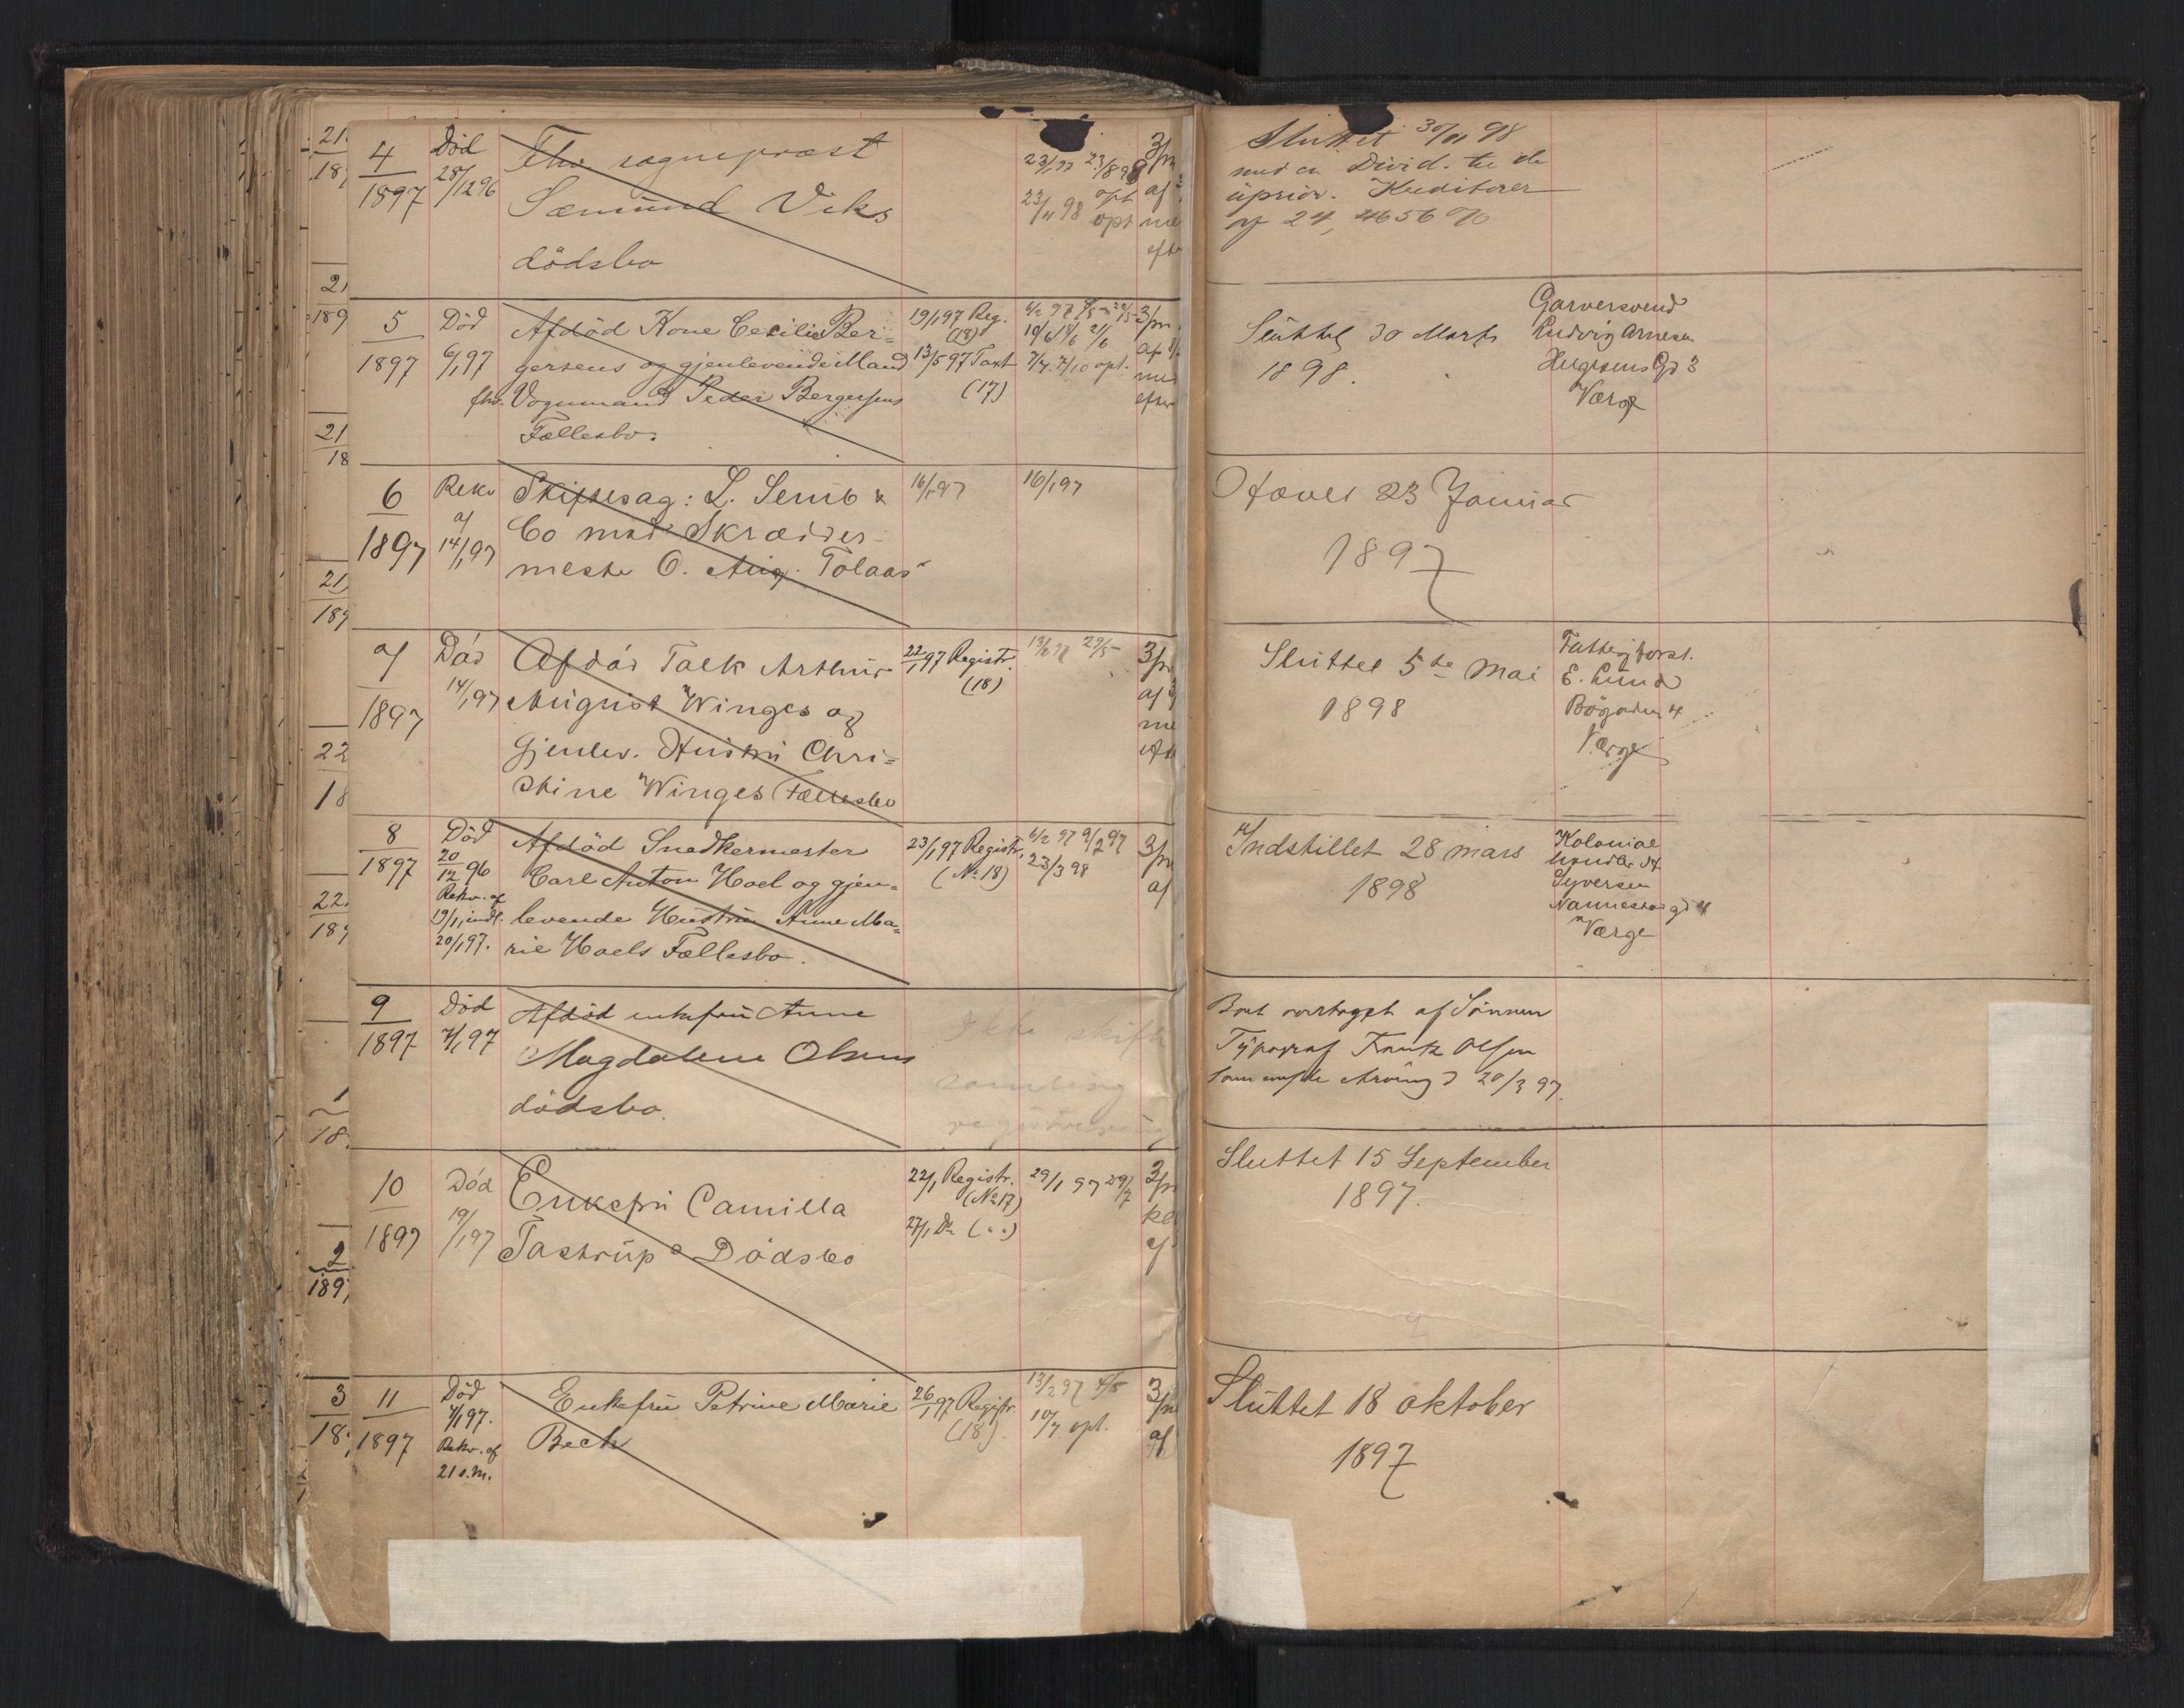 4
1897
Död
28/12 96
Fhv. sognepræst
Sæmund Viks
dödsbo
23/1 97 23/8 98
opt
23/11 98 opt
Sluttet 30/11 98
med en Divid. til de
üprior. Kreditorer
af 24,4656 %
5
1897
Död
6/1 97
Afdöd Kone Cecilie Ber=
gersens og gjenlevende Mand
fhv. Vognmand Peder Bergersens
Fællesbo.
19/1 97 Reg.
(18)
13/5 97 Taxt
(17)
Sluttet 30 Marts
1898.
Garversvend
Ludvig Arnesen
Helgesens Gd 3
Værge
6
1897
Rekv
af
14/1 97
Skiftesag: L. Semb &
Co mod Skrædder
mester O. Aug. Tolaas
16/1 97
16/1 97
Hævet 23 Januar
1897
7
1897
Död
14/1 97
Afdöd Tolk Arthur
August Winges og
Gjenlev. Hustru Chri=
stine Winges Fællesbo
22/1 97 Registr.
(18)
Sluttet 5te Mai
1898
Fattigforst.
E. Lund
Bögaden 4
Værge
8
1897
Död
20/12 96
Rekv. af
19/1, indl.
20/1 97.
Afdöd Snedkermester
Carl Anton Hoel og gjen=
levende Hustru Anne Ma=
rie Hoels Fællesbo.
23/1 97 Registr.
(No 18)
6/2 97 9/2 97
23/3 98
Indstillet 28 mars
1898
Kolonial
handler
Syversen
Nannestadgd 4
Værge
9
1897
Död
4/1 97
Afdöd enkefru Anne
Magdalene Olsens
dödsbo.
Ikke skift
samling
registrering
Boet overtaget af Sönnen
Typograf Frantz Olsen
som eneste Arving d 20/3 97.
10
1897
Död
19/1 97
Enkefru Camilla
Tastrup's Dödsbo
22/1 Registr.
(No 17)
27/1 Do (" ")
29/1 97 29/7
Sluttet 15 September
1897.
11
1897
Död
4/1 97.
Rekv. af
21 s.m.
Enkefru Petrine Marie
Bech
26/1 97 Registr.
(18)
13/2 97 4/5
10/7 opt.
Sluttet 18 oktober
1897